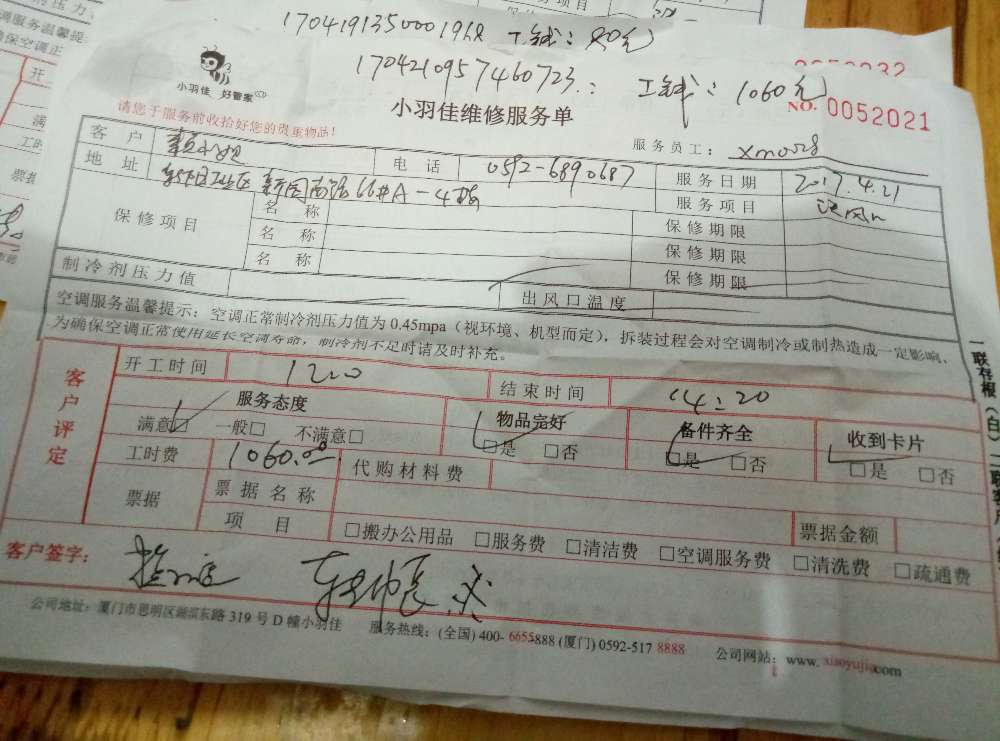 1704191350001968 工钱：80元
170421095746 0723.： 工钱：1060元
小羽佳 好管家
小羽佳维修服务单
NO. 0052021
请您于服务前收拾好您的贵重物品！
服务员工： xm0528
客 户 电 话 0592-6890687 服务日期 2017.4.21
地 址 66#A-4 服务项目
保修项目 名 称 保修期限
名 称 保修期限
名 称 保修期限
制冷剂压力值 出风口温度
空调服务温馨提示：空调正常制冷剂压力值为 0.45mpa（视环境、机型而定），拆装过程会对空调制冷或制热造成一定影响、
为确保空调正常使用延长空调寿命，制冷剂不足时请及时补充。
客户评定
开工时间 结束时间 14:20
服务态度 物品完好 备件齐全 收到卡片
满意□ 一般□ 不满意□ □是 □否 □是 □否 □是 □否
工时费 1060.00 代购材料费
票据 票据名称 票据金额
项 目 □搬办公用品 □服务费 □清洁费 □空调服务费 □清洗费 □疏通费
客户签字：
公司地址：厦门市思明区湖滨东路 319 号 D 幢小羽佳 服务热线：(全国) 400- 6655888 (厦门) 0592-517 8888 公司网站：www. xiaoyujia.com
一联存根（白）